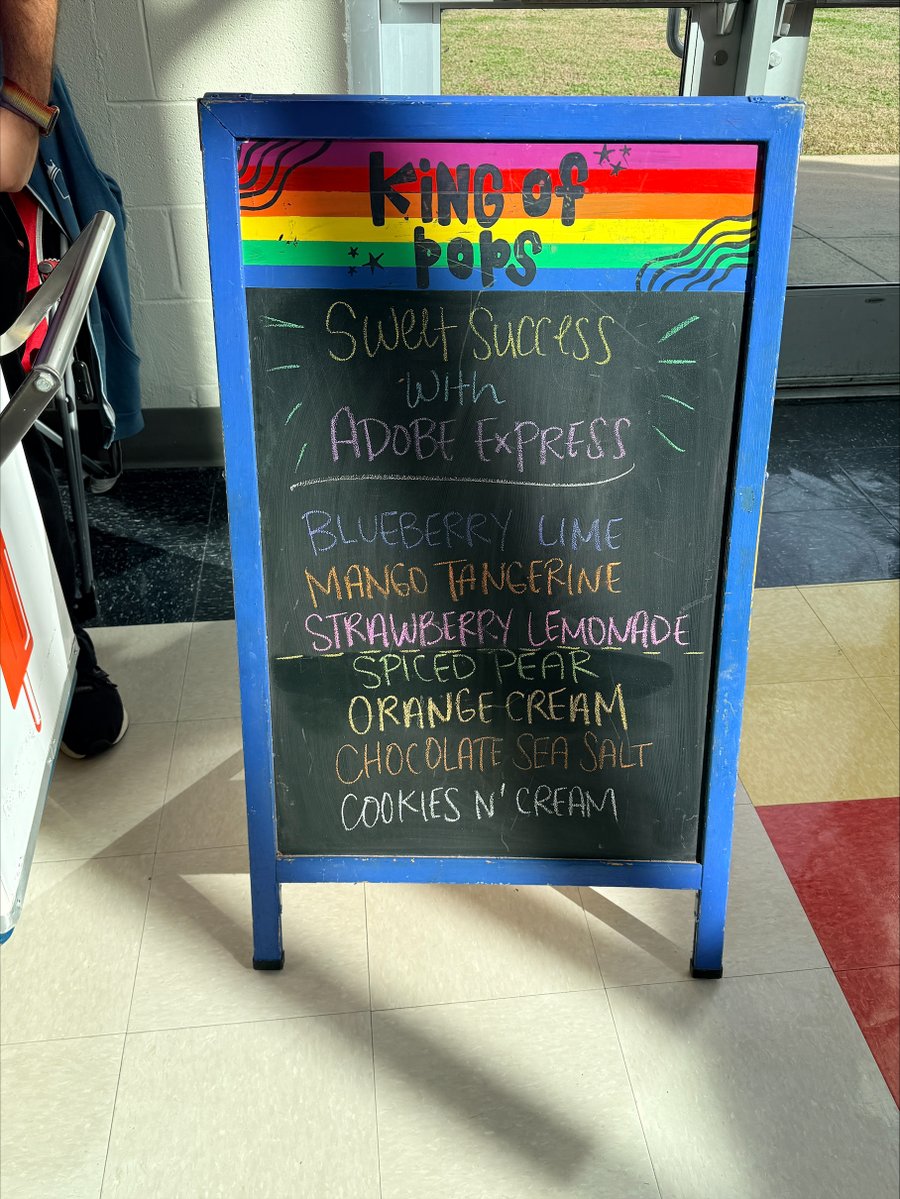 King of
Pops
Sweet Success
with
ADOBE EXPRESS
BLUEBERRY LIME
MANGO TANGERINE
STRAWBERRY LEMONADE
SPICED PEAR
ORANGE CREAM
CHOCOLATE SEA SALT
COOKIES N' CREAM